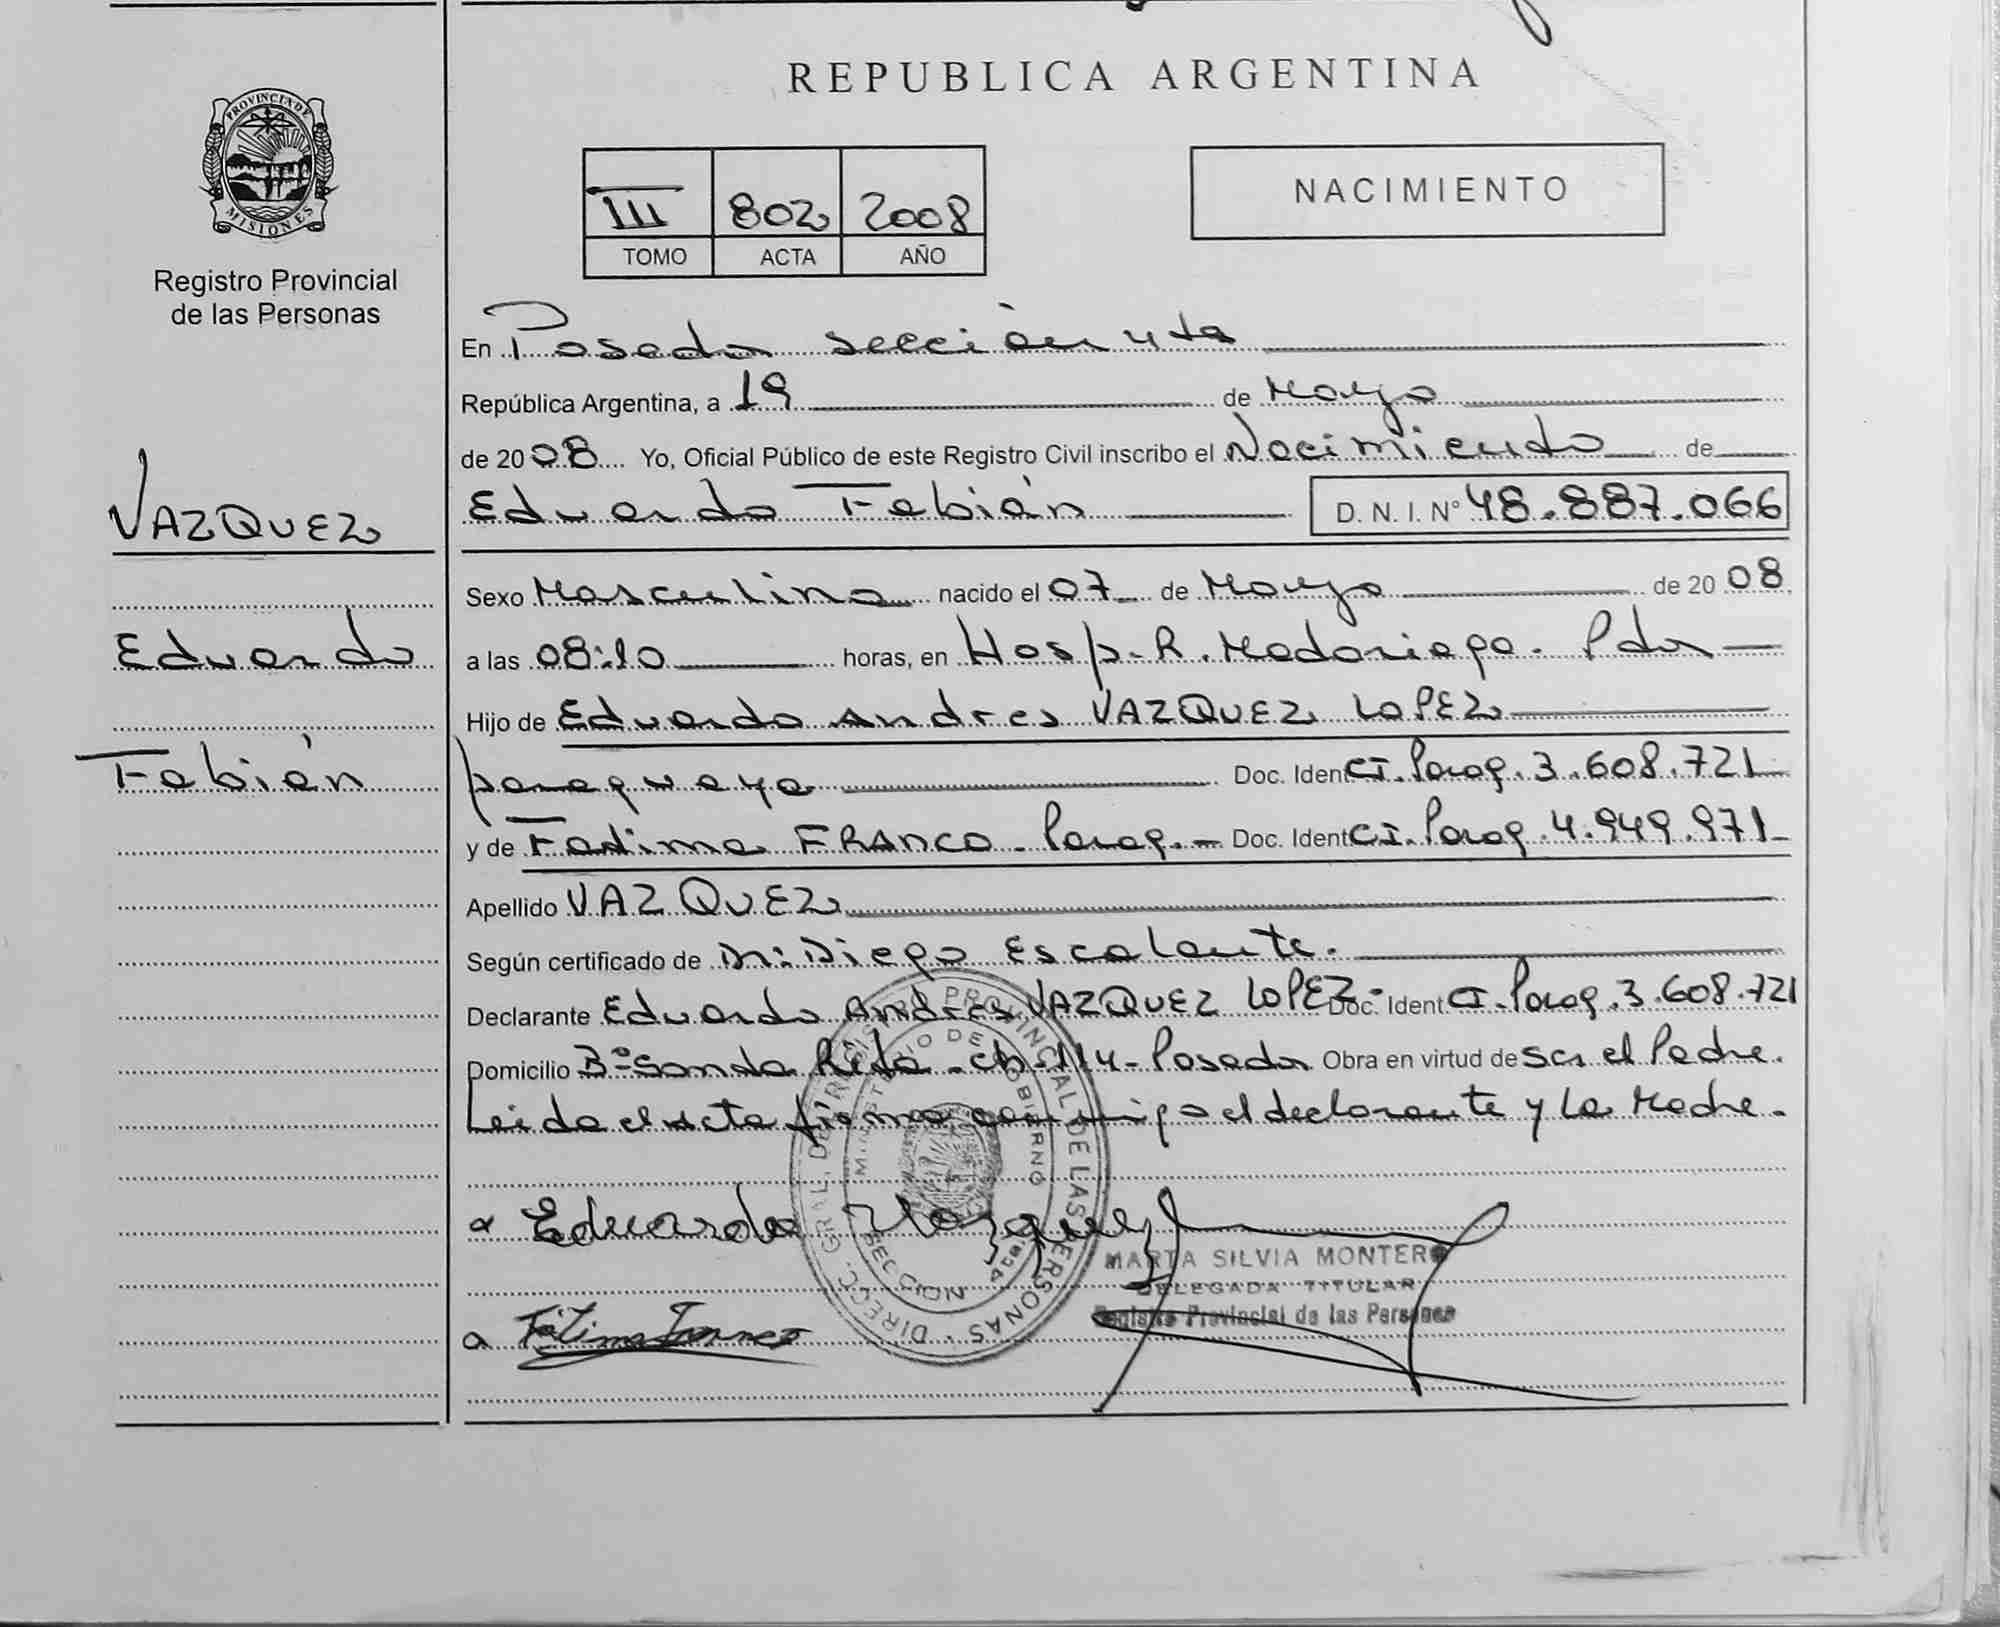 REPUBLICA ARGENTINA
PROVINCIA DE MISIONES
Registro Provincial
de las Personas
III 802 2008
TOMO ACTA AÑO
NACIMIENTO
VAZQUEZ
Eduardo
Fabián
En Posadas sección 4ta
República Argentina, a 19 de Mayo
de 2008 Yo, Oficial Público de este Registro Civil inscribo el Nacimiento de
Eduardo Fabián D. N. I. N° 48.887.066
Sexo Masculino nacido el 07 de Mayo de 2008
a las 08:10 horas, en Hosp. R. Madariaga. Pdas
Hijo de Eduardo Andres VAZQUEZ LOPEZ
paraguaya Doc. Ident CI. Parag. 3.608.721
y de Fatima FRANCO - Parag. - Doc. Ident CI. Parag 4.949.971
Apellido VAZQUEZ
Según certificado de Dr: Diego Escalante.
Declarante Eduardo Andres VAZQUEZ LOPEZ - Doc. Ident CI. Parag. 3.608.721
Domicilio B° Santa Rita - ch. 114 - Posadas Obra en virtud de ser el Padre.
Leida el Acta firma conmigo el declarante y la Madre.
Eduardo Vazquez
Fátima Franco
DIRECC. GRAL. DE REGISTRO PROVINCIAL DE LAS PERSONAS
MINISTERIO DE GOBIERNO
SECCION 4ta
MARTA SILVIA MONTERO
DELEGADA TITULAR
Registro Provincial de las Personas